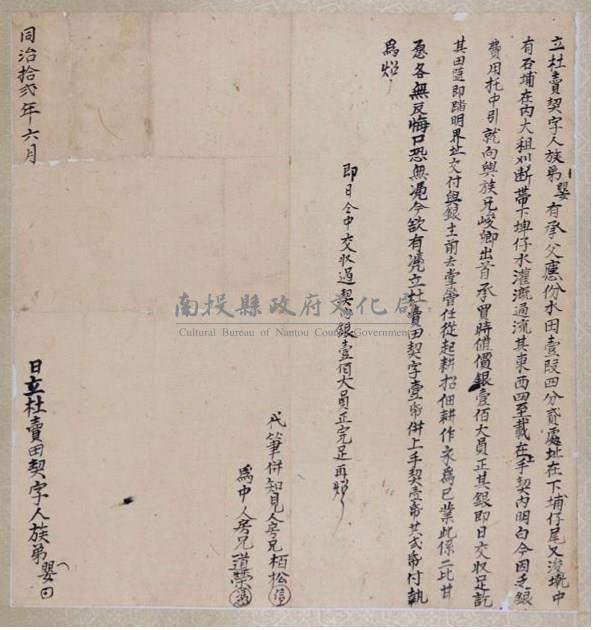 立杜賣契字人族弟嬰有承父應份水田壹段四分貳處址在下埔仔尾又浚坑中
有石埔在內大租刈断帶下埤仔水灌溉通流其東西四至載在上手契內明白今因乏銀
費用托中引就向與族兄峻卿出首承買時值價銀壹佰大員正其銀即日交收足訖
其田隨即踏明界址交付與銀主前去掌管任從起耕招佃耕作永為己業此係二比甘
愿各無反悔口恐無凴今欲有凴立杜賣田契字壹帋併上手契壹帋共弍帋付執
為炤
即日仝中交收過契內銀壹佰大員正完足再炤
代筆併知見人房兄栢松
為中人房兄道榮
同治拾弍年六月
日立杜賣田契字人族弟嬰
南投縣政府文化局
Cultural Bureau of Nantou County Government